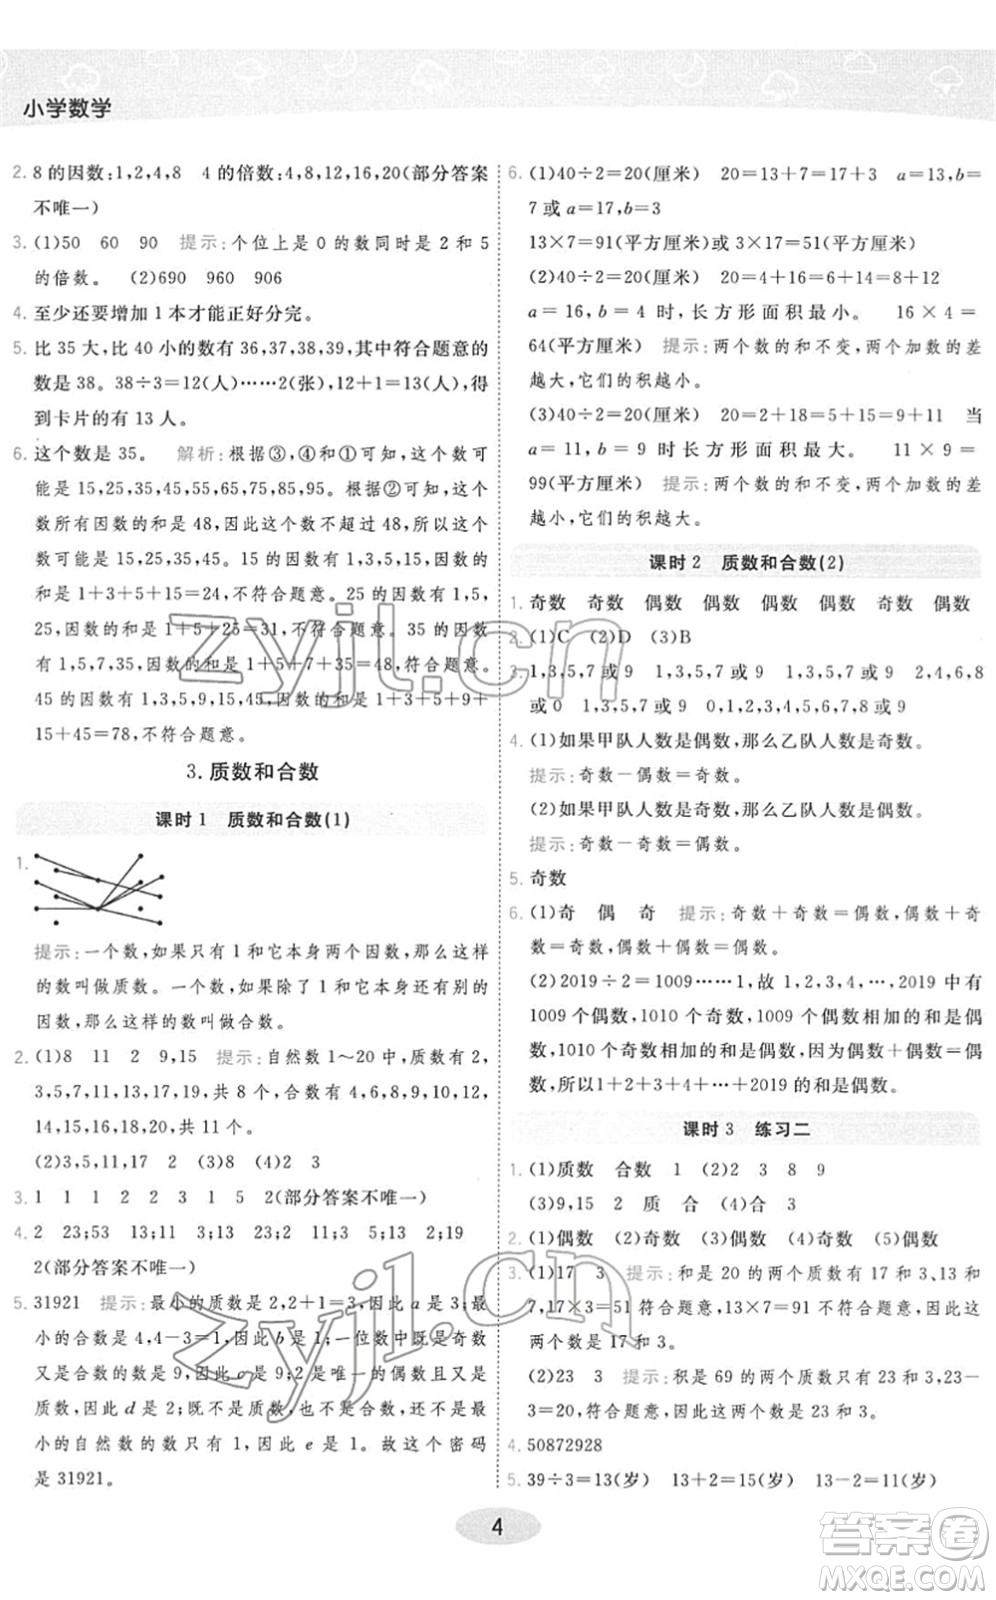 小学数学
2. 8的因数:1,2,4,8　4的倍数:4,8,12,16,20(部分答案
不唯一)
3. (1)50　60　90　提示:个位上是0的数同时是2和5
的倍数。　(2)690　960　906
4. 至少还要增加1本才能正好分完。
5. 比35大,比40小的数有36,37,38,39,其中符合题意的
数是38。38÷3=12(人)……2(张),12+1=13(人),得
到卡片的有13人。
6. 这个数是35。　解析:根据③,④和①可知,这个数可
能是15,25,35,45,55,65,75,85,95。根据②可知,这个
数所有因数的和是48,因此这个数不超过48,所以这个
数可能是15,25,35,45。15的因数有1,3,5,15,因数的
和是1+3+5+15=24,不符合题意。25的因数有1,5,
25,因数的和是1+5+25=31,不符合题意。35的因数
有1,5,7,35,因数的和是1+5+7+35=48,符合题意。
45的因数有1,3,5,9,15,45,因数的和是1+3+5+9+
15+45=78,不符合题意。
3.质数和合数
课时1　质数和合数(1)
1.
提示:一个数,如果只有1和它本身两个因数,那么这样
的数叫做质数。一个数,如果除了1和它本身还有别的
因数,那么这样的数叫做合数。
2. (1)8　11　2　9,15　提示:自然数1～20中,质数有2,
3,5,7,11,13,17,19,共8个,合数有4,6,8,9,10,12,
14,15,16,18,20,共11个。
(2)3,5,11,17　2　(3)8　(4)2　3
3. 1　1　1　1　2　3　1　5　2(部分答案不唯一)
4. 2　23;53　13;11　17　23;2　11;3　5;13　2;19
2(部分答案不唯一)
5. 31921　提示:最小的质数是2,2+1=3,因此a是3;最
小的合数是4,4-3=1,因此b是1;一位数中既是奇数
又是合数的数是9,因此c是9;2是唯一的偶数且是
质数,因此d是2;既不是质数,也不是合数,且是最
小的自然数的数只有1,因此e是1。故这个密码
是31921。
6. (1)40÷2=20(厘米)　20=13+7=17+3　a=13,b=
7或a=17,b=3
13×7=91(平方厘米)或3×17=51(平方厘米)
(2)40÷2=20(厘米)　20=4+16=6+14=8+12
a=16,b=4时,长方形面积最小。　16×4=
64(平方厘米)　提示:两个数的和不变,两个加数的差
越大,它们的积越小。
(3)40÷2=20(厘米)　20=2+18=5+15=9+11　当
a=11,b=9时长方形面积最大。　11×9=
99(平方厘米)　提示:两个数的和不变,两个加数的差
越小,它们的积越大。
课时2　质数和合数(2)
1. 奇数　奇数　偶数　偶数　偶数　偶数　奇数　偶数
2. (1)C　(2)D　(3)B
3. 1,3,5,7或9　1,3,5,7或9　1,3,5,7或9　2,4,6,8
或0　1,3,5,7或9　0,1,2,3,4,5,6,7,8或9
4. (1)如果甲队人数是偶数,那么乙队人数是奇数。
提示:奇数-偶数=奇数。
(2)如果甲队人数是奇数,那么乙队人数是偶数。
提示:奇数-奇数=偶数。
5. 奇数
6. (1)奇　偶　奇　提示:奇数+奇数=偶数,偶数+奇
数=奇数,偶数+偶数=偶数。
(2)2019÷2=1009……1,故1,2,3,4,…,2019中有
1009个偶数,1010个奇数,1009个偶数相加的和是偶
数,1010个奇数相加的和是偶数,因为偶数+偶数=偶
数,所以1+2+3+4+…+2019的和是偶数。
课时3　练习二
1. (1)质数　合数　1　(2)2　3　8　9
(3)9,15　2　质　合　(4)合　3
2. (1)偶数　(2)奇数　(3)奇数　(4)偶数　(5)偶数
3. (1)17　3　提示:和是20的两个质数有17和3、13和
7,17×3=51符合题意,13×7=91不符合题意,因此这
两个数是17和3。
(2)23　3　提示:积是69的两个质数只有23和3,23-
3=20,符合题意,因此这两个数是23和3。
4. 50872928
5. 39÷3=13(岁)　13+2=15(岁)　13-2=11(岁)
4
zyjl.cn
zyjl.cn
答案圈
MXQE.COM